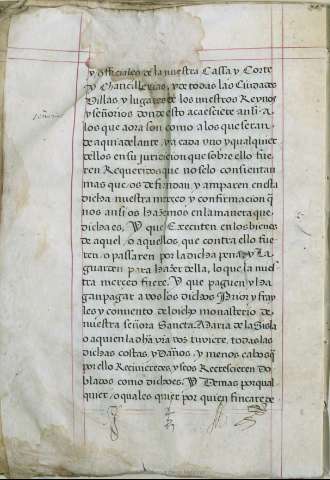 y officiales de la nuestra Cassa y Corte
y Chancillerias, y de todas las Ciudades
Villas y lugares de los nuestros Reynos
y señorios donde esto acaesciere ansi a
los que aora son como a los que seran
de aqui adelante, y a cada uno y qualquier
dellos en su juridicion que sobre ello fue
ren Requeridos que no selo consientan
mas que os defiendan y amparen en esta
dicha nuestra merced y confirmacion q
nos ansi os hazemos en la manera que
dicha es, Y que Executen en los bienes
de aquel, o aquellos, que contra ello fue
ren, o passaren por la dicha pena, y La
guarden para hazer della, lo que la nues
tra merced fuere. Y que paguen y ha
gan pagar a vos los dichos Prior y fray
les y convento del dicho monasterio de
nuestra señora Sancta Maria de la Sisla
o a quien la dha vra voz tuviere, todas las
dichas costas, y Daños, y menos cabos q
por ello Recivieredes, y se os Recrescieren Do
blados como dicho es. Y Demas por qual
quier, o quales quier por quien fincare de